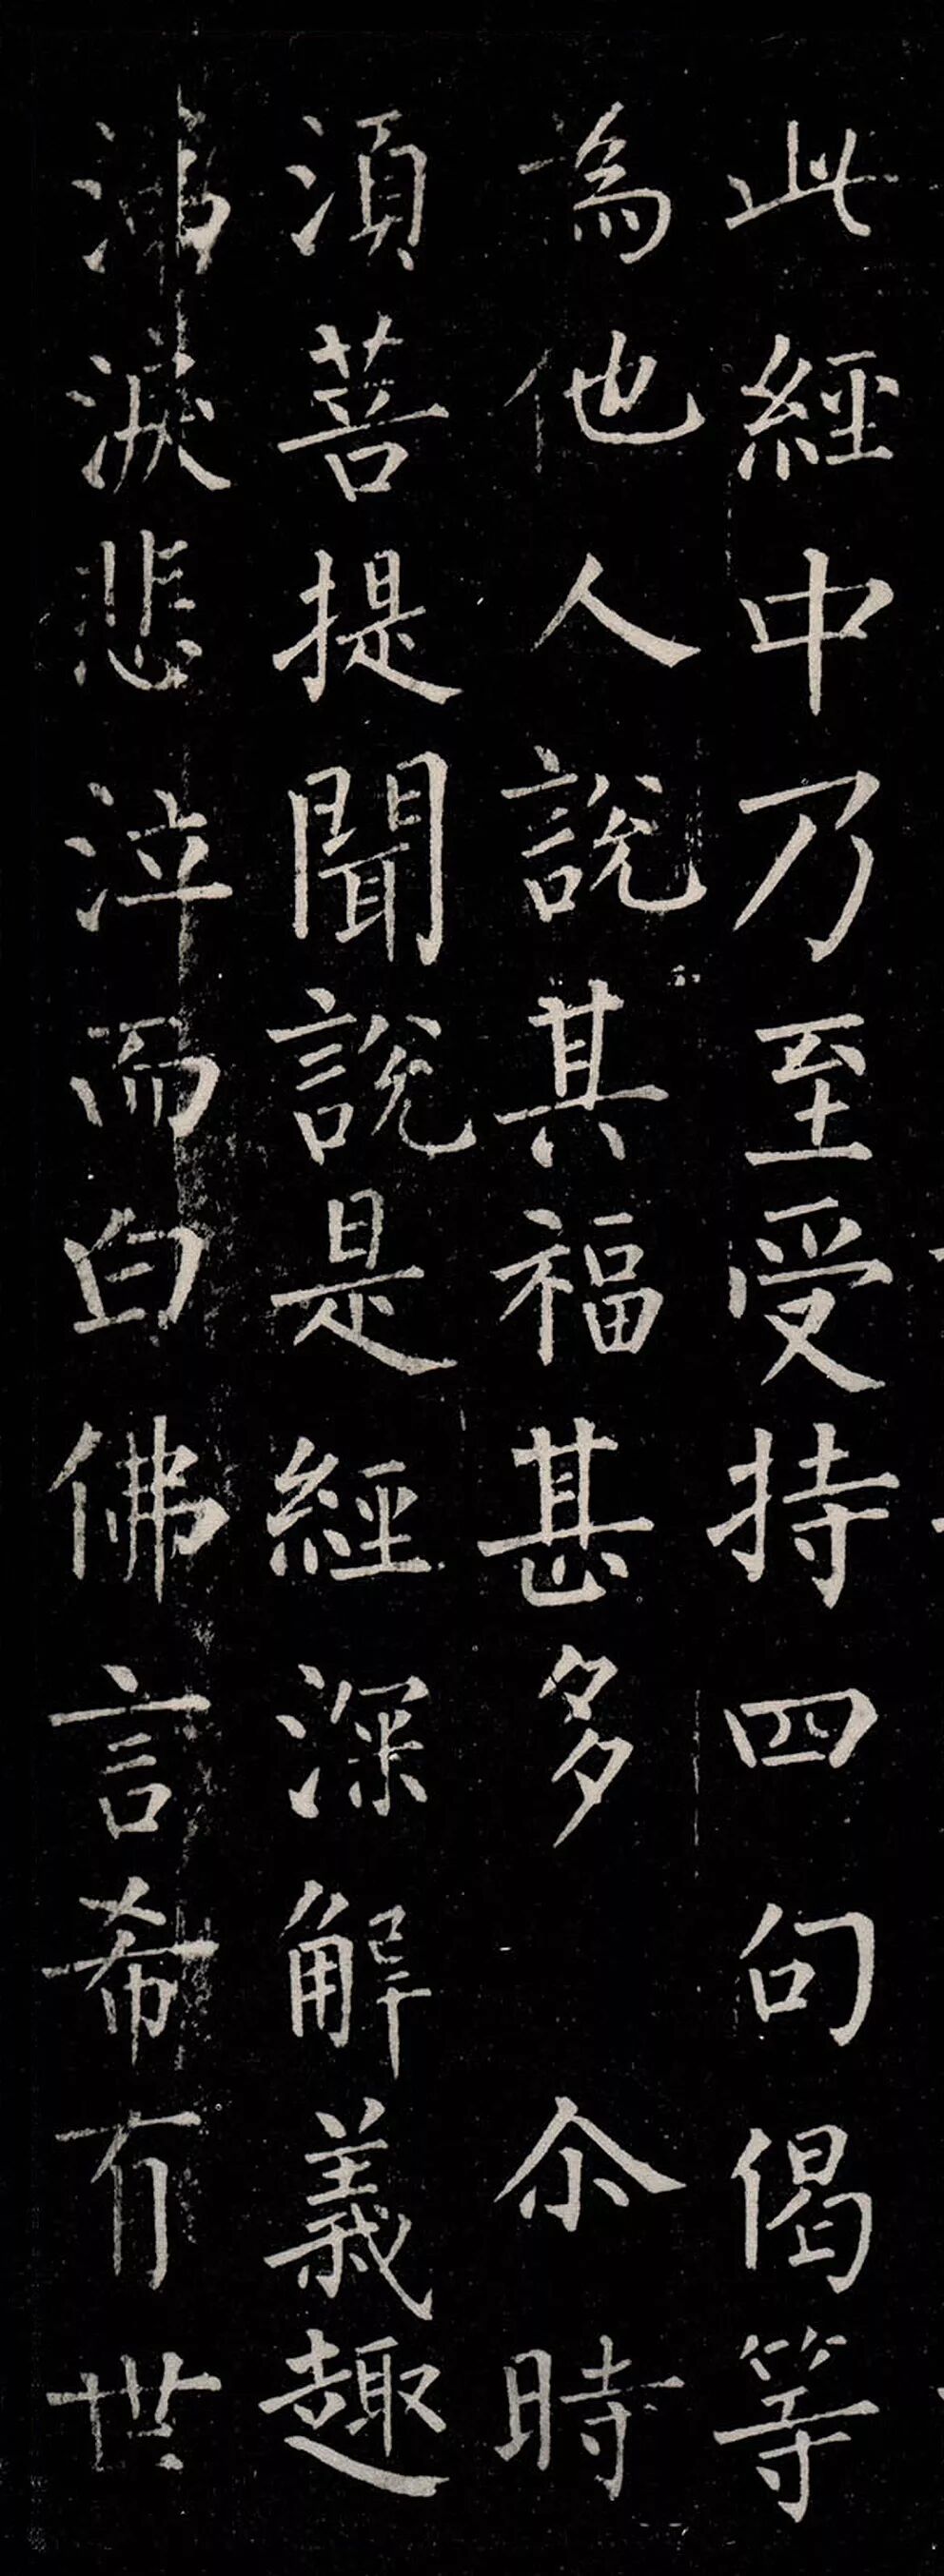 此經中乃至受持四句偈等
為他人說其福甚多 尒時
湏菩提聞說是經深解義趣
涕淚悲泣而白佛言希有世